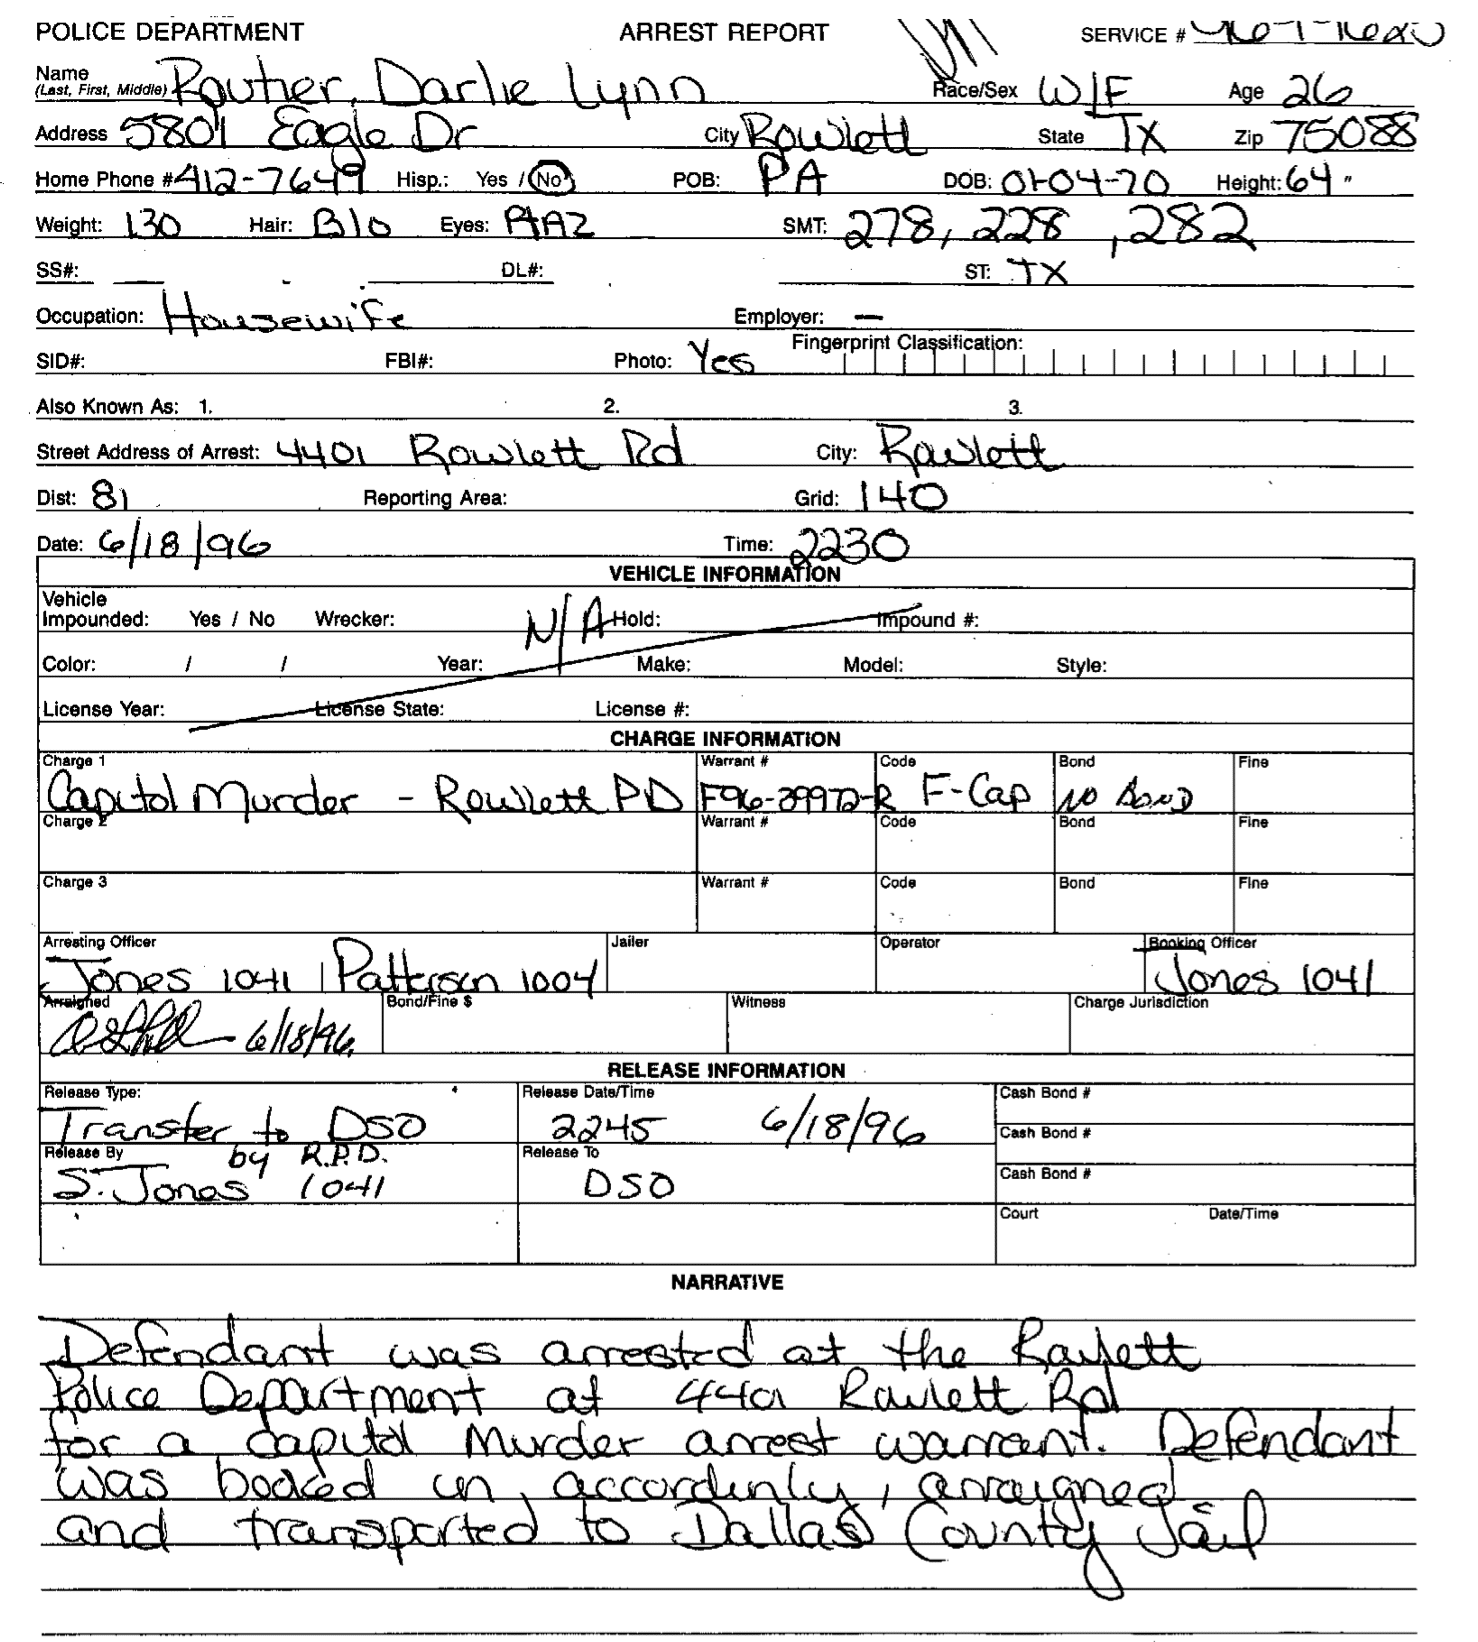 POLICE DEPARTMENT ARREST REPORT SERVICE #
Name (Last, First, Middle) Routier, Darlie Lynn Race/Sex W/F Age 26
Address 5801 Eagle Dr City Rowlett State TX Zip 75088
Home Phone # 412-7649 Hisp.: Yes / No POB: PA DOB: 01-04-70 Height: 64 "
Weight: 130 Hair: Blo Eyes: HAZ SMT: 278, 228, 282
SS#: DL#: ST: TX
Occupation: Housewife Employer: —
SID#: FBI#: Photo: Yes Fingerprint Classification:
Also Known As: 1. 2. 3.
Street Address of Arrest: 4401 Rowlett Rd City: Rowlett
Dist: 81 Reporting Area: Grid: 140
Date: 6/18/96 Time: 2230
VEHICLE INFORMATION
Vehicle Impounded: Yes / No Wrecker: N/A Hold: Impound #:
Color: / / Year: Make: Model: Style:
License Year: License State: License #:
CHARGE INFORMATION
Charge 1 Warrant # Code Bond Fine
Capitol Murder - Rowlett PD F96-39972-R F-Cap NO BOND
Charge 2 Warrant # Code Bond Fine
Charge 3 Warrant # Code Bond Fine
Arresting Officer Jailer Operator Booking Officer
Jones 1041 / Patterson 1004 Jones 1041
Arraigned Bond/Fine $ Witness Charge Jurisdiction
6/18/96
RELEASE INFORMATION
Release Type: Release Date/Time Cash Bond #
Transfer to DSO 2245 6/18/96
Cash Bond #
by R.P.D.
Release By Release To
S. Jones 1041 DSO
Cash Bond #
Court Date/Time
NARRATIVE
Defendant was arrested at the Rowlett
Police Department at 4401 Rowlett Rd
for a capitol Murder arrest warrant. Defendant
was booked in, accordinly, arraigned
and transported to Dallas County Jail